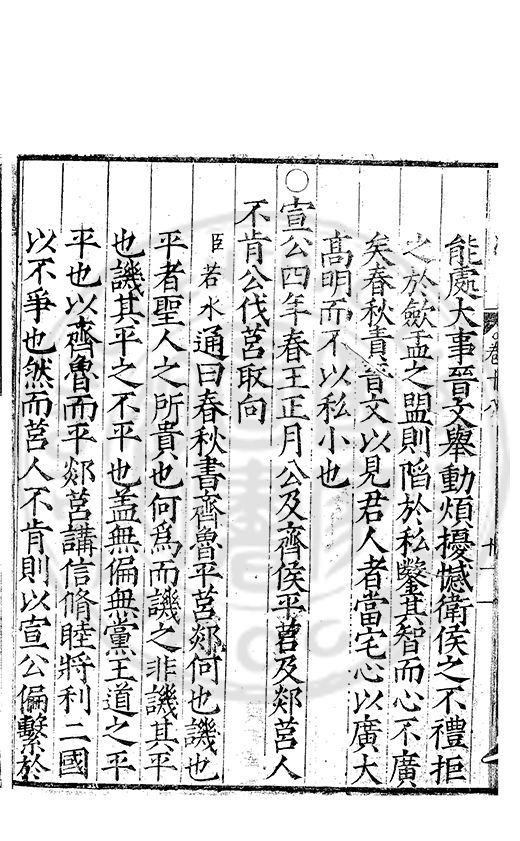 能處大事晉文舉動煩擾憾衛侯之不禮拒
之於歛盂之盟則陷於私鑿其智而心不廣
矣春秋責晉文以見君人者當宅心以廣大
高明而不以私小也
○宣公四年春王正月公及齊侯平莒及郯莒人
不肯公伐莒取向
臣若水通曰春秋書齊魯平莒郯何也譏也
平者聖人之所貴也何為而譏之非譏其平
也譏其平之不平也盖無偏無黨王道之平
平也以齊魯而平郯莒講信脩睦將利二國
以不爭也然而莒人不肯則以宣公偏繫於